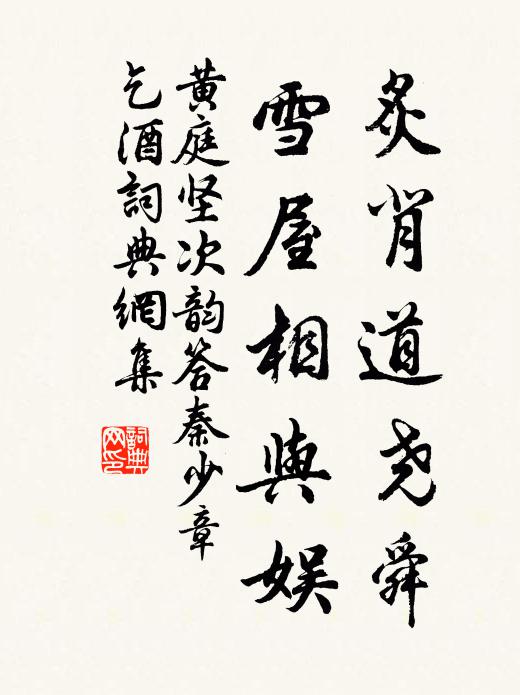 炙背道尧舜
雪屋相與娱
黄庭坚次韵答秦少章
乞酒詞典網集
詞典网印